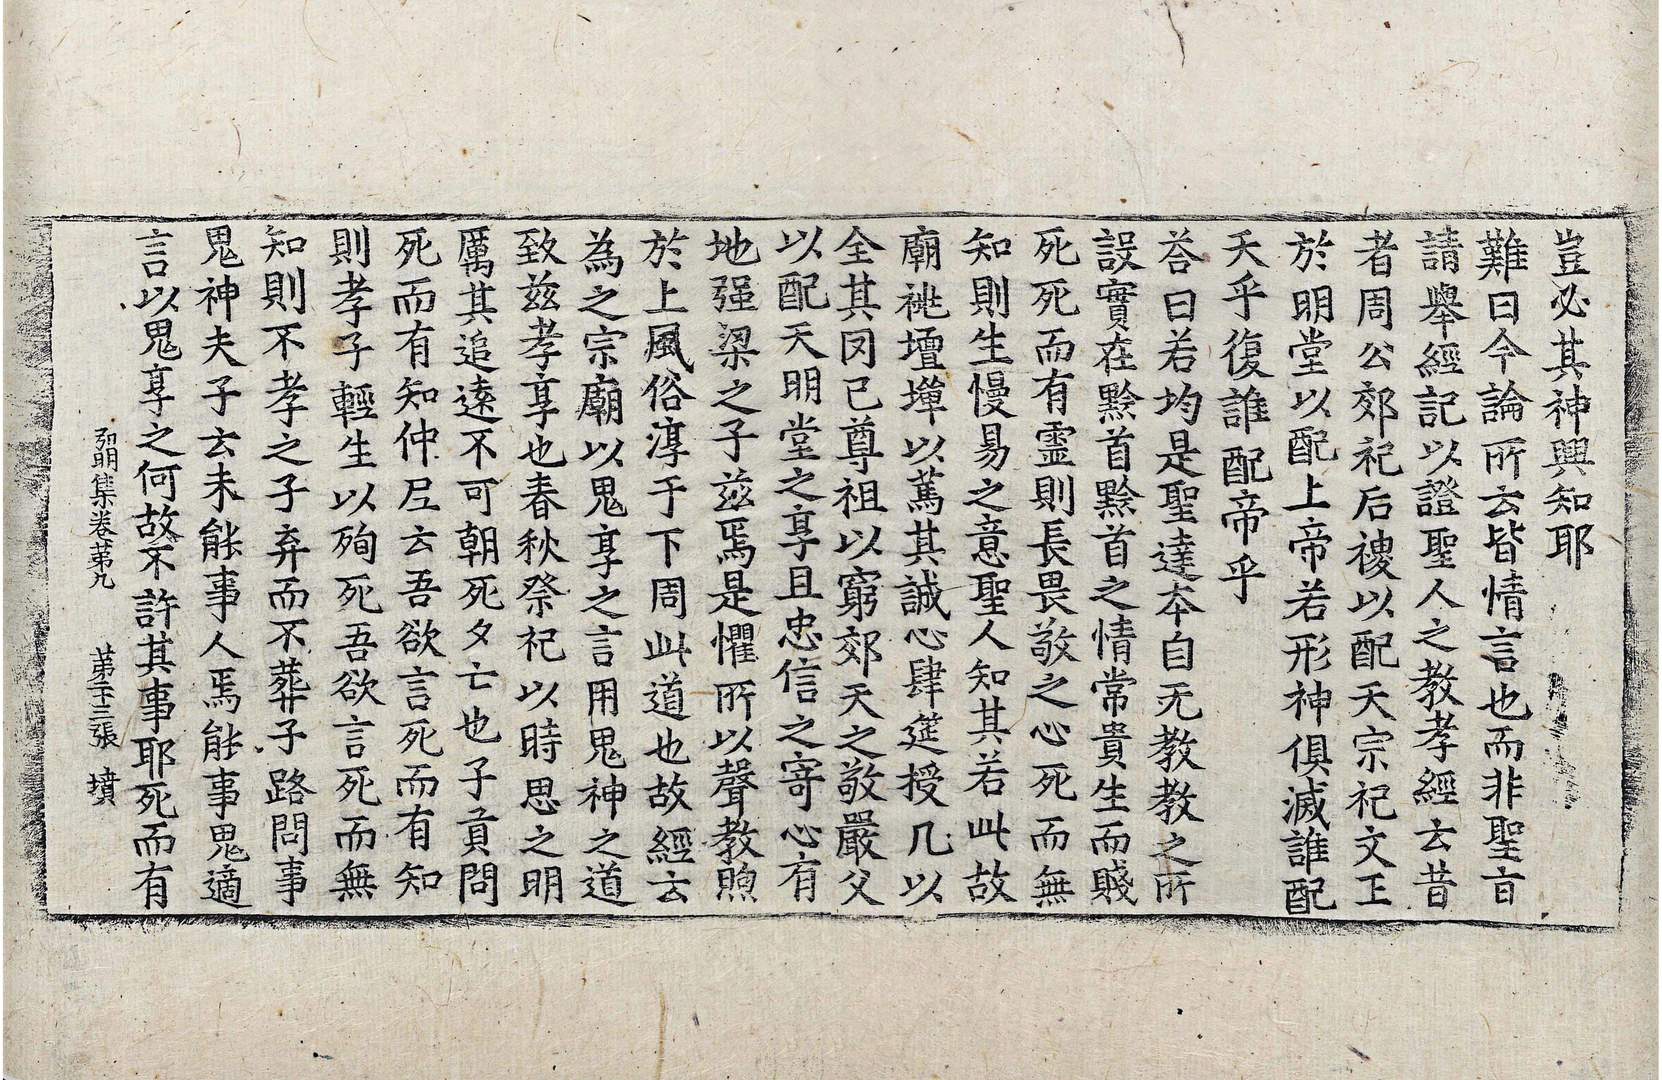 豈必其神興知耶
難曰今論所云皆情言也而非聖旨
請舉經記以證聖人之教孝經云昔
者周公郊祀后稷以配天宗祀文王
於明堂以配上帝若形神俱滅誰配
天乎復誰配帝乎
荅曰若均是聖達本自无教教之所
設實在黔首黔首之情常貴生而賤
死死而有靈則長畏敬之心死而無
知則生慢易之意聖人知其若此故
廟祧壇墠以篤其誠心肆筵授几以
全其罔已尊祖以窮郊天之敬嚴父
以配天明堂之享且忠信之寄心有
地强梁之子茲焉是懼所以聲教煦
於上風俗淳于下周此道也故經云
為之宗廟以鬼享之言用鬼神之道
致茲孝享也春秋祭祀以時思之明
厲其追遠不可朝死夕亡也子貢問
死而有知仲尼云吾欲言死而有知
則孝子輕生以殉死吾欲言死而無
知則不孝之子弃而不葬子路問事
鬼神夫子云未能事人焉能事鬼適
言以鬼享之何故不許其事耶死而有
弘明集卷第九 第二十三張 墳